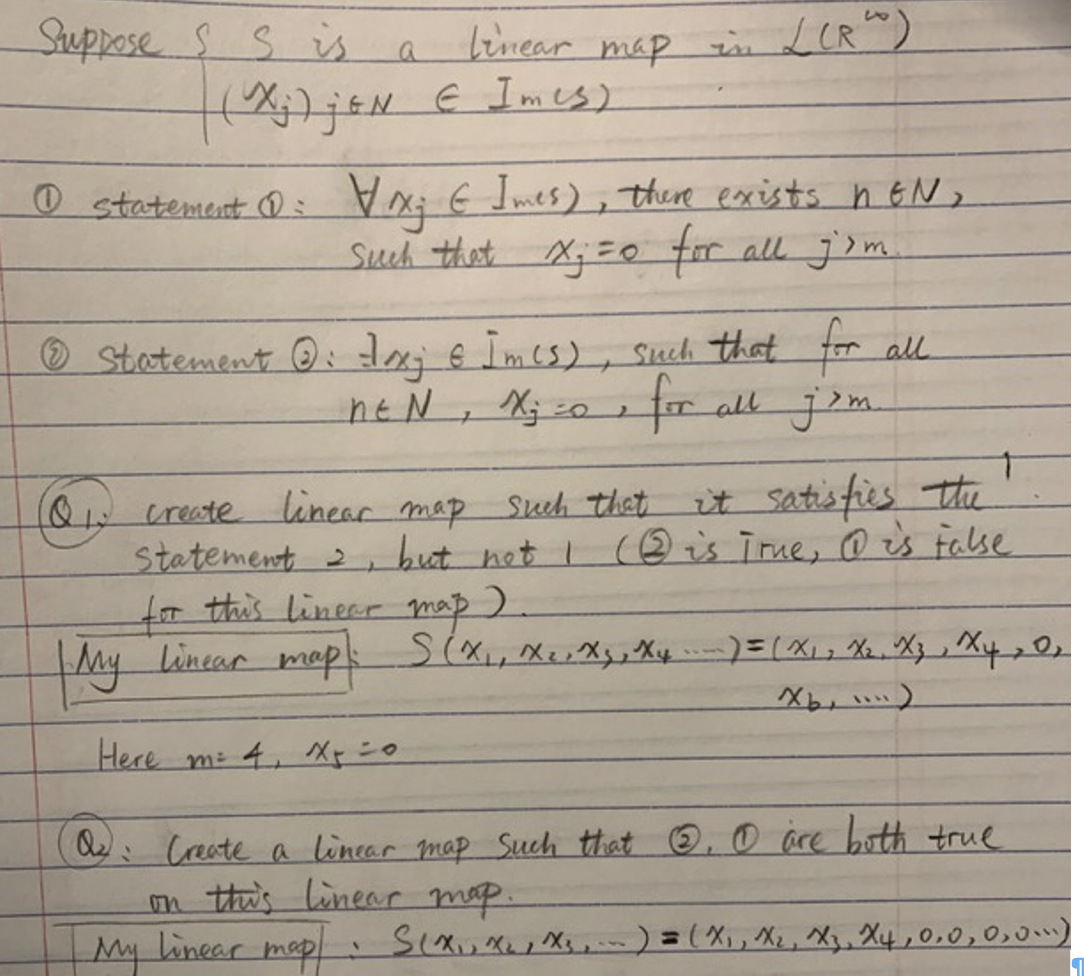 Suppose { S is a linear map in L(R^∞)
(xj)j∈N ∈ Im(S)
① statement ①: ∀xj ∈ Im(S), there exists n∈N,
such that xj=0 for all j>m.
② statement ②: ∃xj ∈ Im(S), such that for all
n∈N, xj=0, for all j>m.
Q1: create linear map such that it satisfies the
statement 2, but not 1 (② is True, ① is false
for this linear map).
My linear map: S(x1, x2, x3, x4 .....) = (x1, x2, x3, x4, 0,
x6, ....)
Here m=4, x5=0
Q2: Create a linear map such that ②, ① are both true
on this linear map.
My linear map: S(x1, x2, x3, ...) = (x1, x2, x3, x4, 0, 0, 0, 0...)